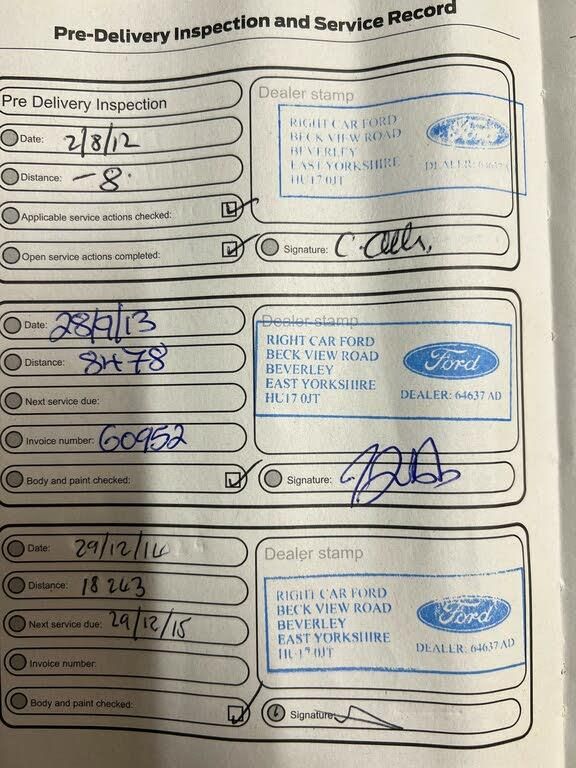 Pre-Delivery Inspection and Service Record
Pre Delivery Inspection
Date: 2/8/12
Distance: -8.
Applicable service actions checked:
Open service actions completed:
Dealer stamp
RIGHT CAR FORD
BECK VIEW ROAD
BEVERLEY
EAST YORKSHIRE
HU17 0JT
Ford
DEALER: 64637
Signature:
Date: 28/9/13
Distance: 8478
Next service due:
Invoice number: 60952
Body and paint checked:
Dealer stamp
RIGHT CAR FORD
BECK VIEW ROAD
BEVERLEY
EAST YORKSHIRE
HU17 0JT
Ford
DEALER: 64637 AD
Signature:
Date: 29/12/14
Distance: 18 243
Next service due: 29/12/15
Invoice number:
Body and paint checked:
Dealer stamp
RIGHT CAR FORD
BECK VIEW ROAD
BEVERLEY
EAST YORKSHIRE
HU17 0JT
Ford
DEALER: 64637 AD
Signature: